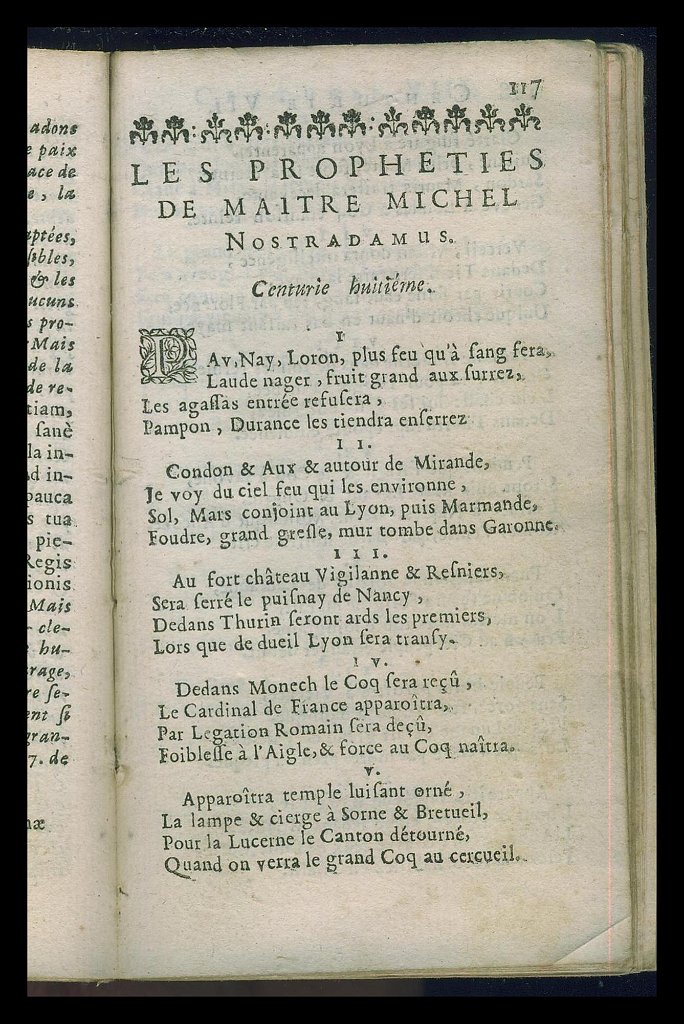 adons
paix
ace de
e, la
ptées,
sibles,
& les
ucuns
s pro-
Mais
de la
de re-
tiam,
sanè
la in-
Ad in-
pauca
s tua
pie-
Regis
ionis
Mais
cle-
hu-
rage,
re se-
ent si
gran-
7. de
næ
117
LES PROPHETIES
DE MAITRE MICHEL
NOSTRADAMUS.
Centurie huitiéme.
I
PAv, Nay, Loron, plus feu qu'à sang sera,
Laude nager, fruit grand aux surrez,
Les agassas entrée refusera,
Pampon, Durance les tiendra enserrez
II.
Condon & Aux & autour de Mirande,
Je voy du ciel feu qui les environne,
Sol, Mars conjoint au Lyon, puis Marmande,
Foudre, grand gresle, mur tombe dans Garonne.
III.
Au fort château Vigilanne & Resniers,
Sera serré le puisnay de Nancy,
Dedans Thurin seront ards les premiers,
Lors que de dueil Lyon sera transy.
IV.
Dedans Monech le Coq sera reçû,
Le Cardinal de France apparoîtra,
Par Legation Romain sera deçû,
Foiblesse à l'Aigle, & force au Coq naîtra.
V.
Apparoîtra temple luisant orné,
La lampe & cierge à Sorne & Bretueil,
Pour la Lucerne le Canton détourné,
Quand on verra le grand Coq au cercueil.